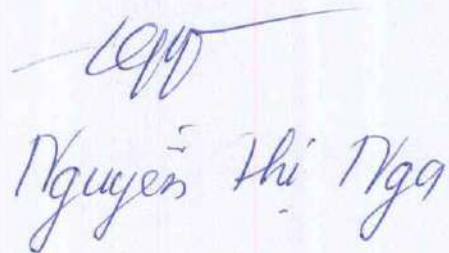 Nguyễn Thị Nga